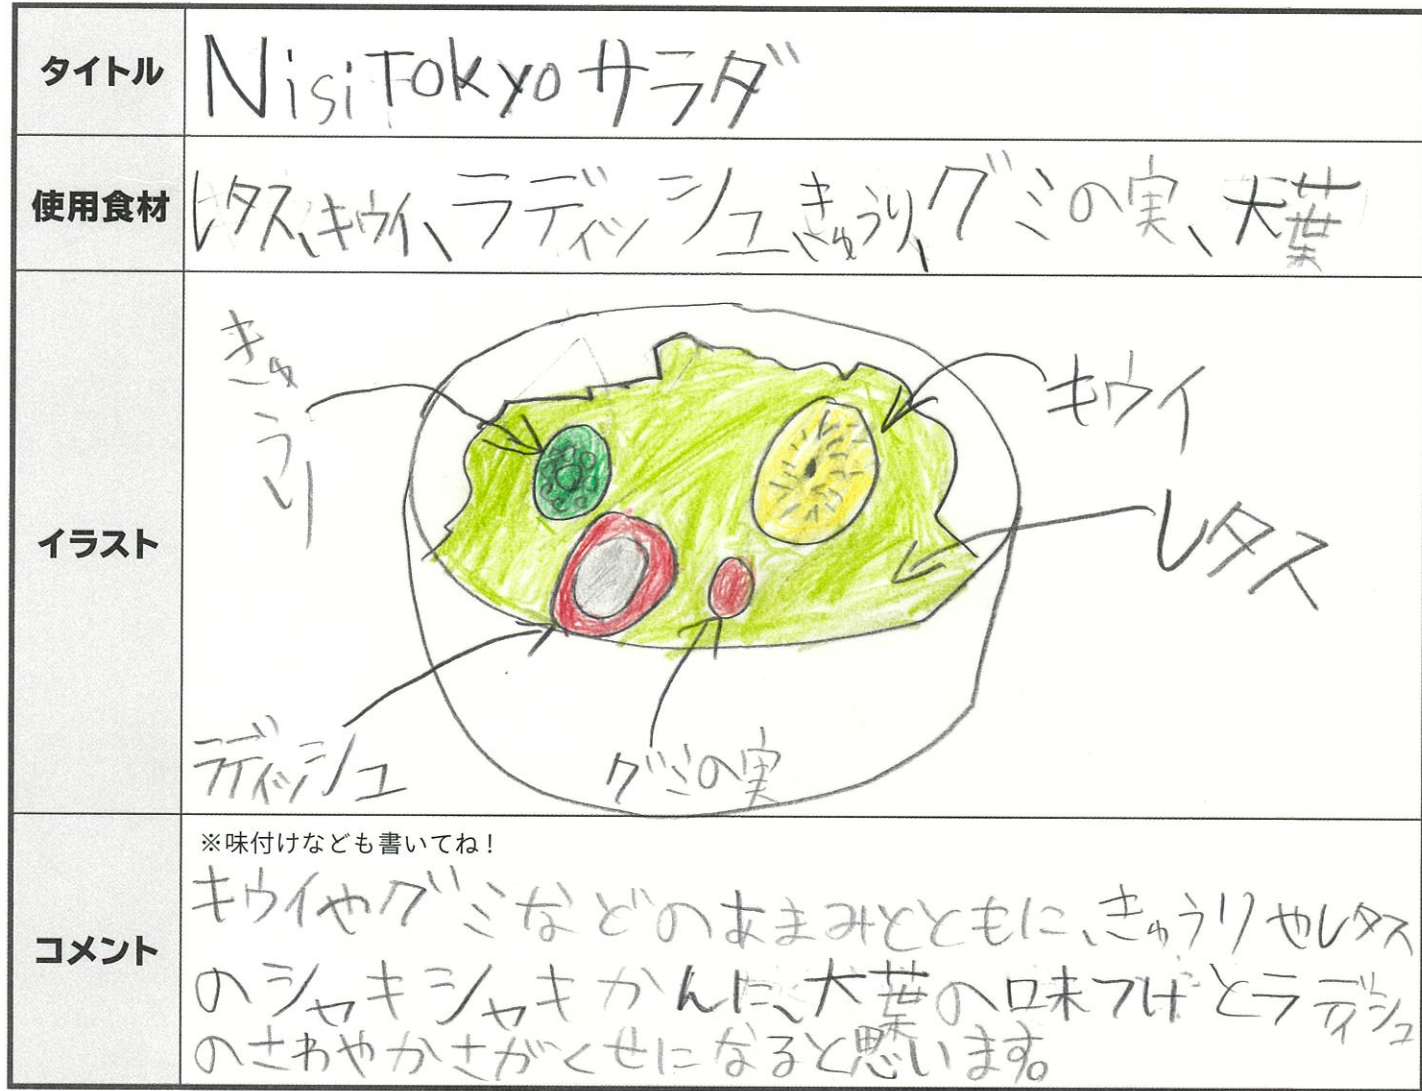 タイトル
NisiTokyoサラダ
使用食材
レタス、キウイ、ラディッシュ、きゅうり、グミの実、大葉
イラスト
きゅうり
キウイ
レタス
ラディッシュ
グミの実
コメント
※味付けなども書いてね！
キウイやグミなどのあまみとともに、きゅうりやレタス
のシャキシャキかんに、大葉の味つけとラディシュ
のさわやかさがくせになると思います。